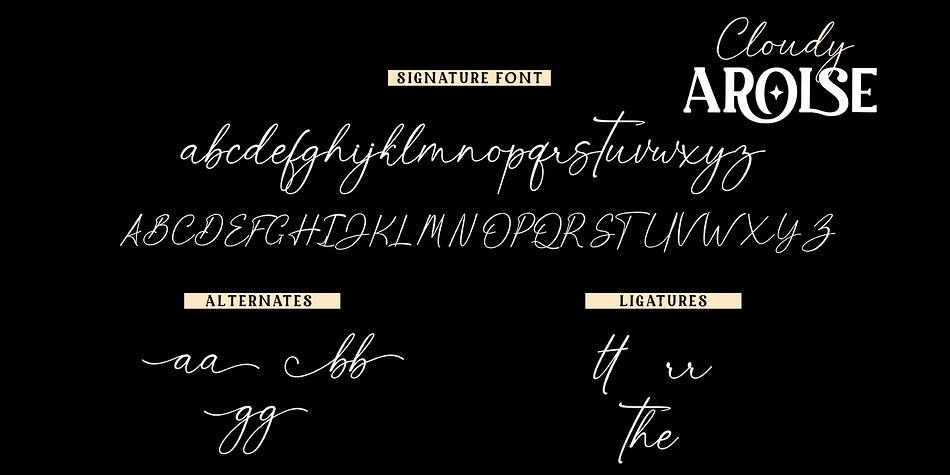 Cloudy
AROISE
SIGNATURE FONT
abcdefghijklmnopqrstuvwxyz
ABCDEFGHIJKLMNOPQRSTUVWXYZ
ALTERNATES
LIGATURES
aa cbb
tt rr
gg
the